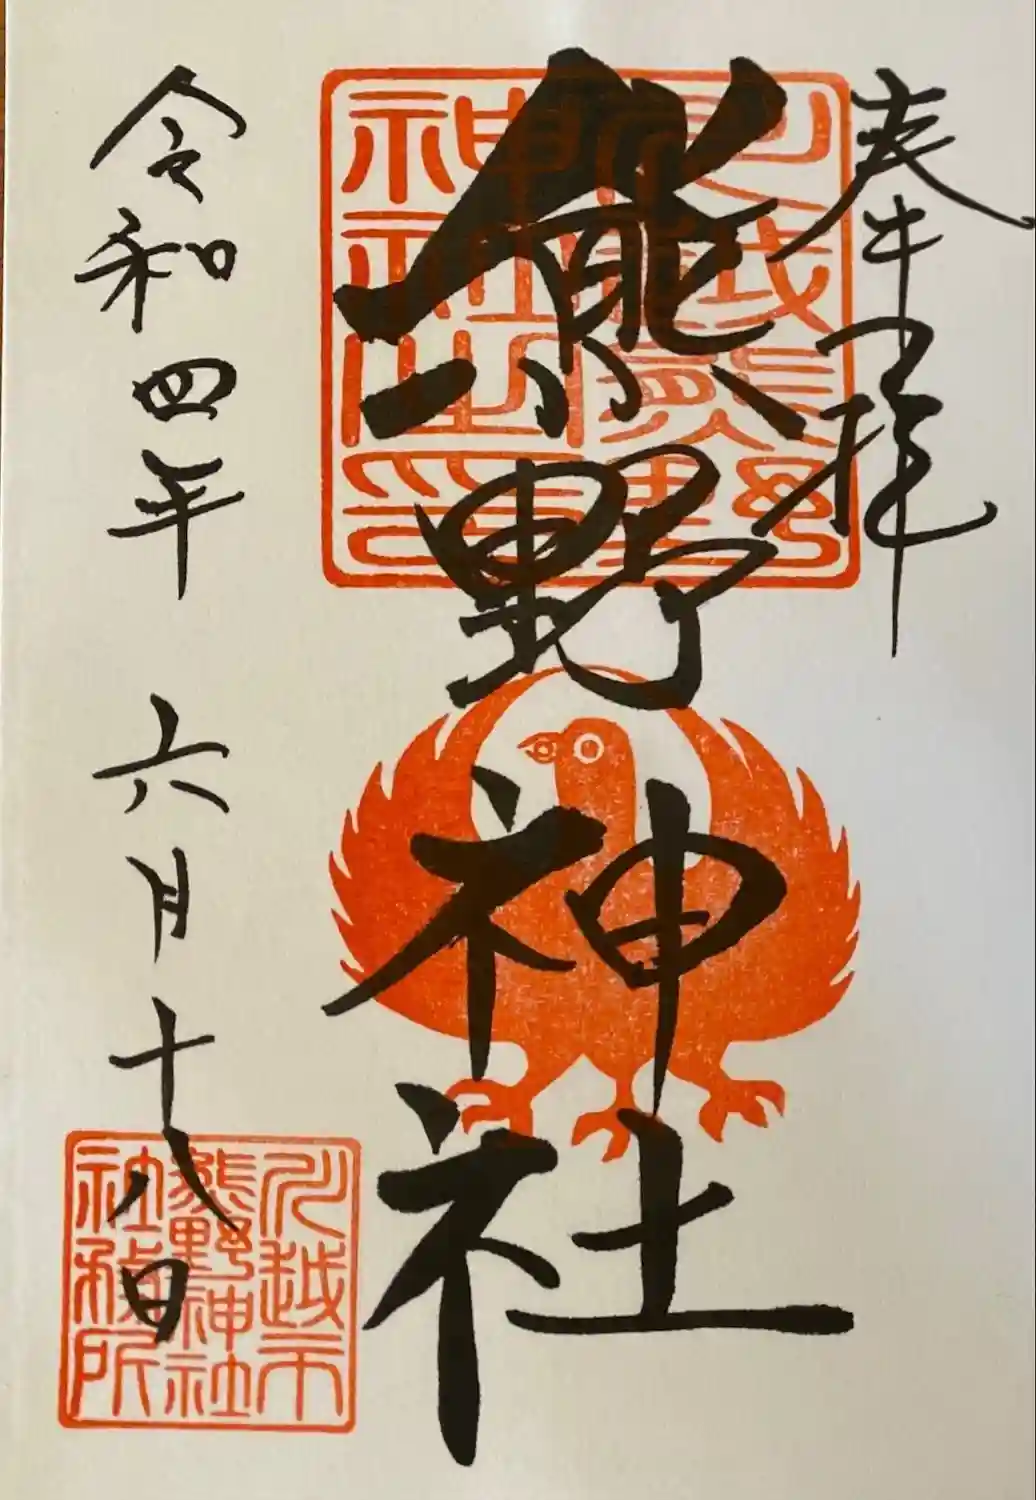 奉拝
熊野神社
令和四年六月十八日
川越熊野神社之印
川越市熊野神社務所